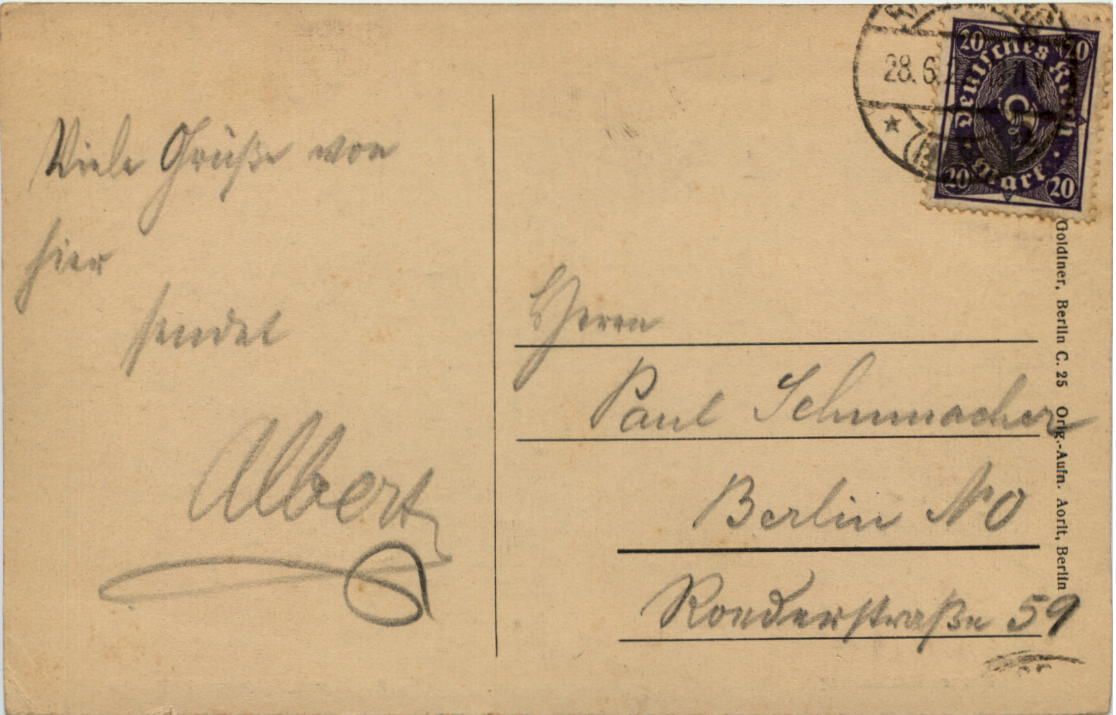 Viele Grüße von
hier
sendet
Albert
28.6.2
20 20
Deutsches Reich
Mark
20 20
Herrn
Paul Schumacher
Berlin NO
59
Goldiner, Berlin C. 25 Orig.-Aufn. Aorit, Berlin